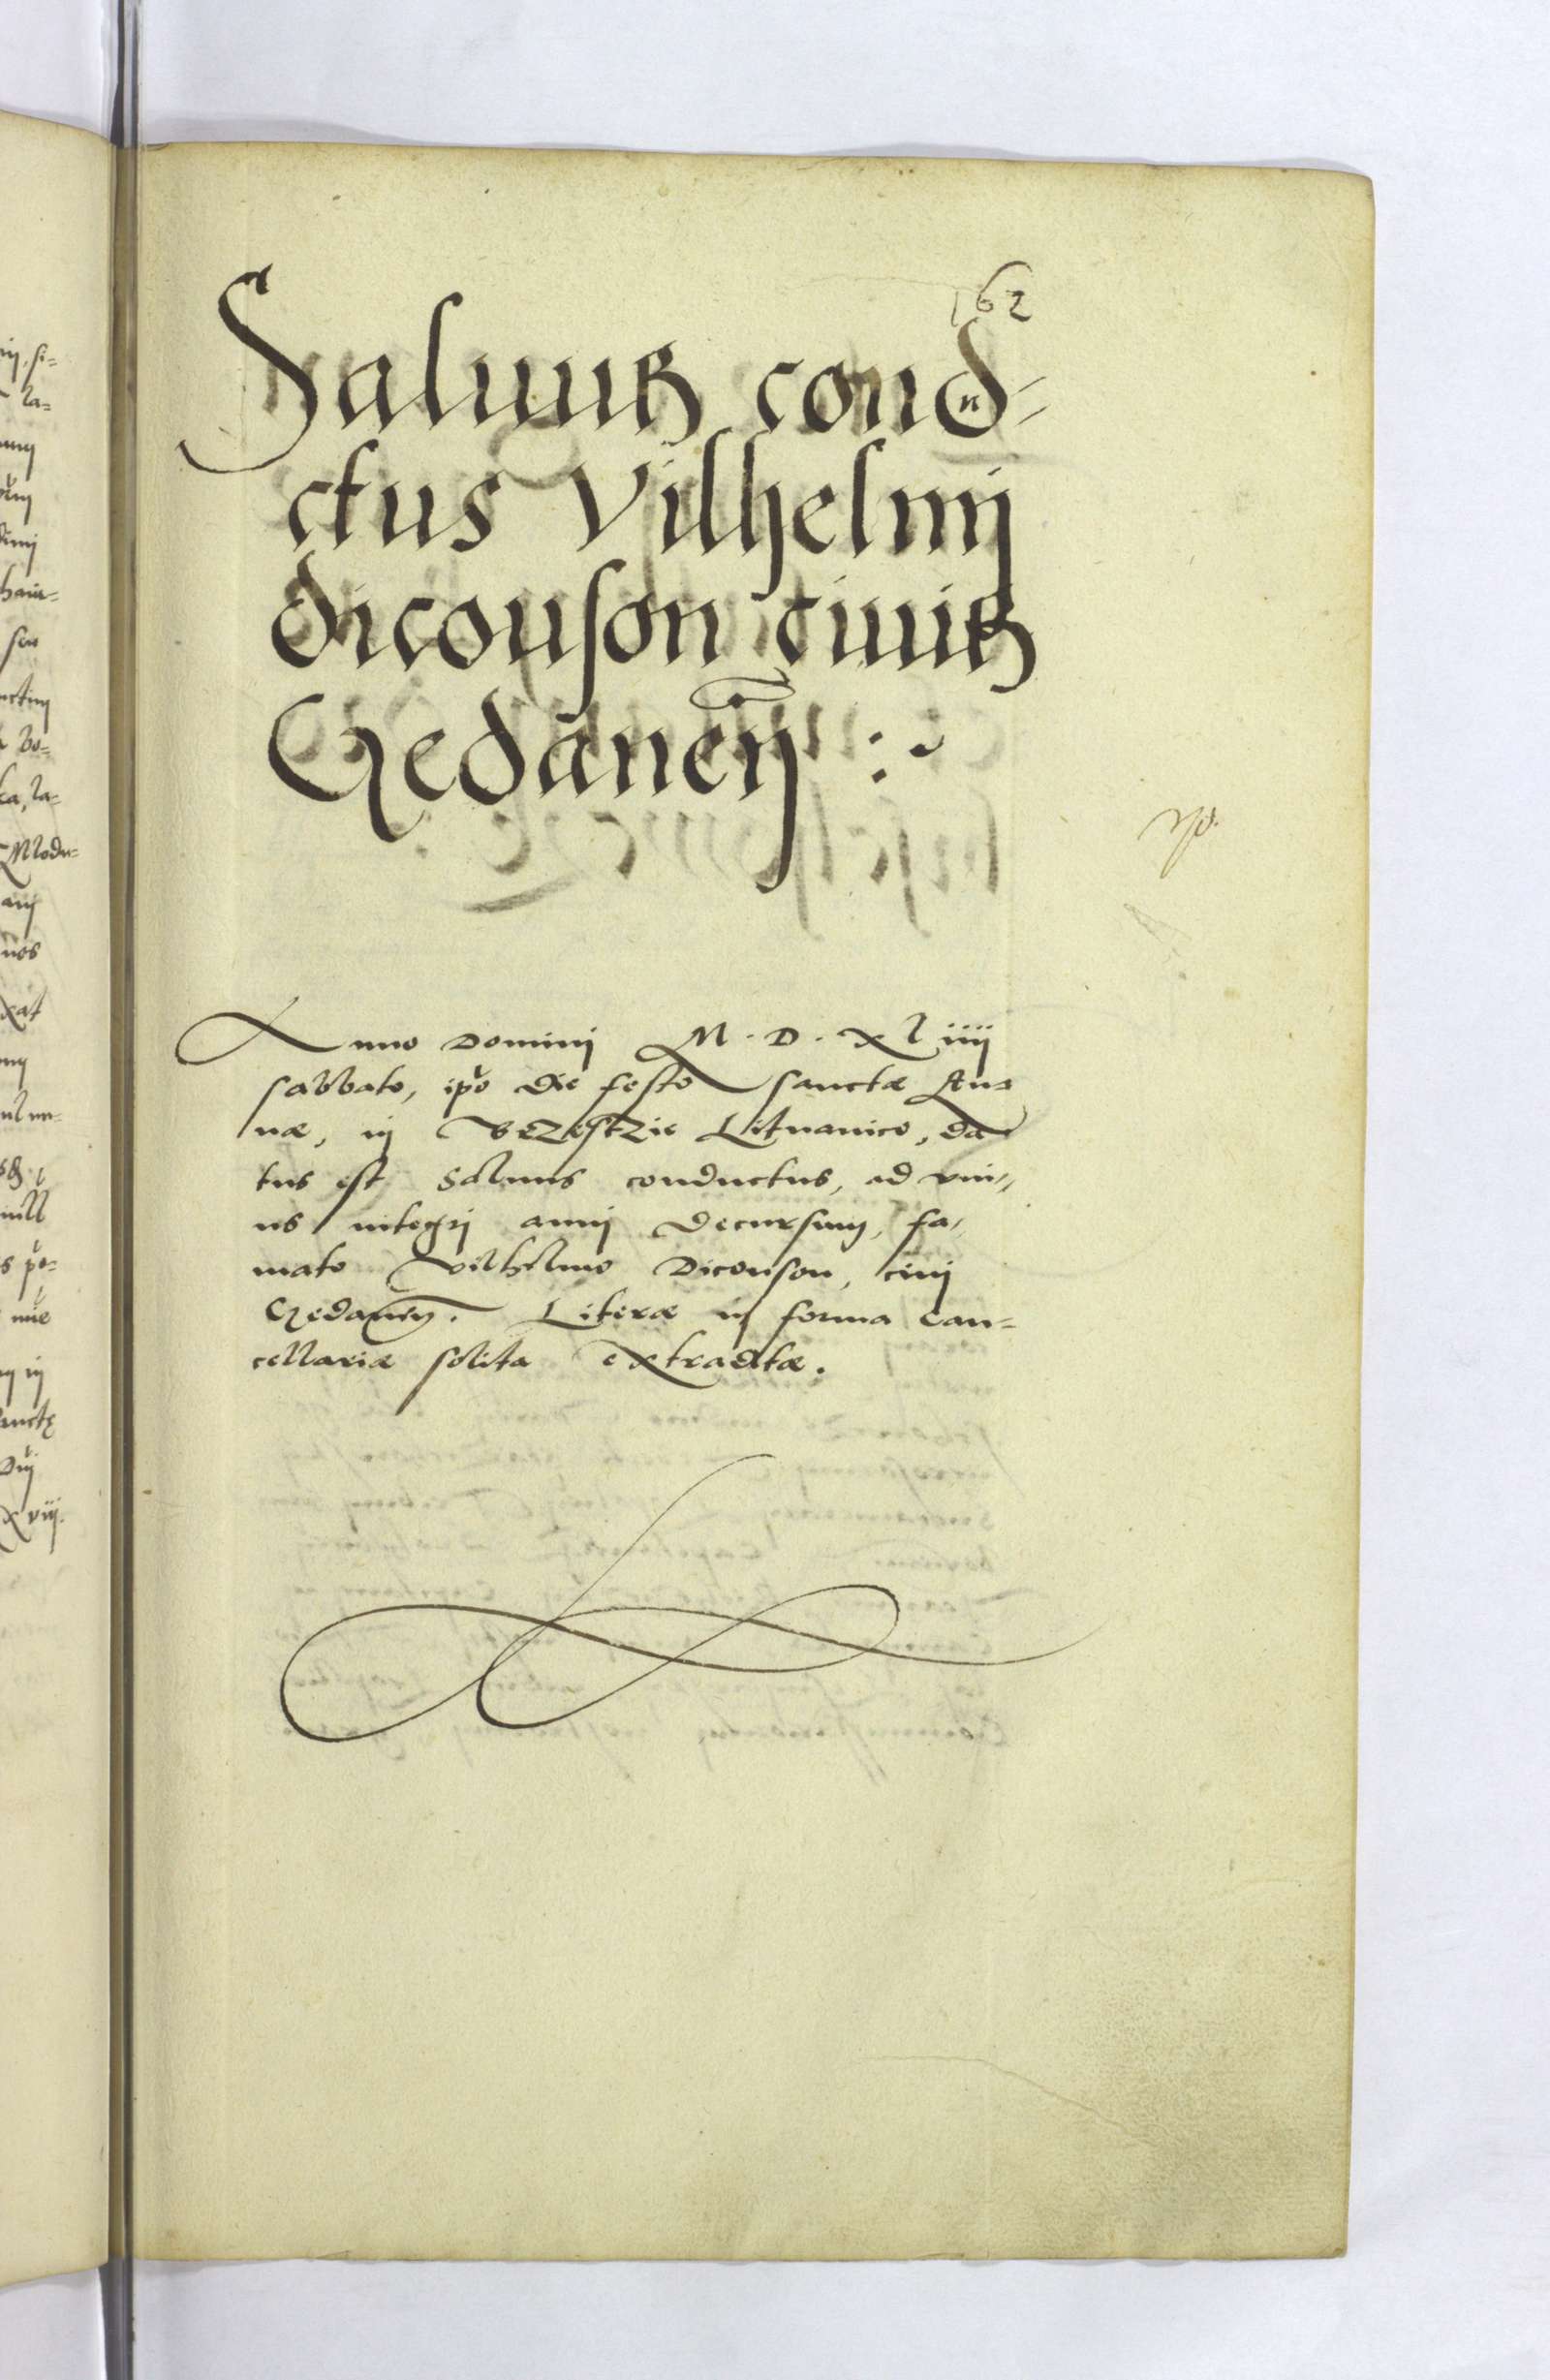 162
Saluus condu-
ctus Vilhelmi
diconson ciuis
Gedaneñ :~
Anno Domini M.D.XLiiii
sabbato, ip̃o die festo sanctæ An-
næ, in Brzestzie Lituanico, da
tus est saluus conductus, ad vni-
us integri anni decursum, fa-
mato Vilhelmo Diconson, ciui
Gedaneñ. Literæ in forma can-
cellariæ solita extraditæ.